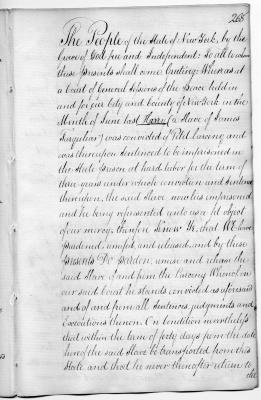 268
The People of the State of New York, by the
Grace of God free and Independent: To all to whom
these presents shall come Greeting: Whereas at
a Court of General Sessions of the Peace held in
and for our City and County of New York in the
Month of June last Harry (a Slave of James
) was convicted of Petit Larceny and
was thereupon Sentenced to be imprisoned in
the State prison at hard labor for the term of
three years under which conviction and Sentence
thereupon, the said Slave now lies imprisoned
and he being represented unto us a fit object
of our mercy, therefore Know Ye, that We have
pardoned, remised, and released, and by these
presents Do pardon, remise and release the
said Slave of and from the Larceny Whereof in
our said Court he stands convicted as aforesaid
and of and from all Sentences, judgments and
Executions thereon. On Condition nevertheless
that within the term of forty days from the date
hereof the said Slave be transported from this
State and that he never thereafter return to
the